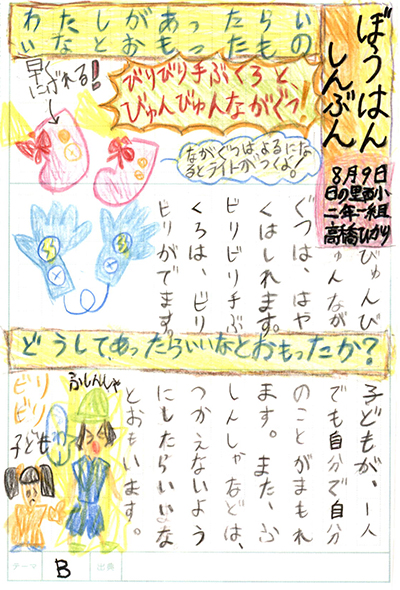 ぼうはん
しんぶん
8月9日
日の里西小
二年一組
高橋ひかり
わたしがあったらい
いなとおもったもの
びりびり手ぶくろと
びゅんびゅんながぐつ!
早く
にげれる!
ながぐつは、よるにな
るとライトがつくよ!
びゅんび
ゅんなが
ぐつは、はや
くはしれます。
ビリビリ手ぶ
くろは、ビリ
ビリがでます。
どうして、あったらいいなとおもったか?
子どもが、一人
でも自分で自分
のことがまもれ
ます。また、ふ
しんしゃなどは、
つかえないよう
にしたらいいな
とおもいます。
ふしんしゃ
ビリ
ビリ
子ども
テーマ
B
出典